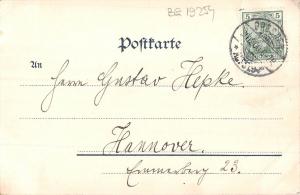 BG 19254
5 5
Postkarte
An
Herrn Gustav Hepke.
Hannover.
Emmerberg 23.